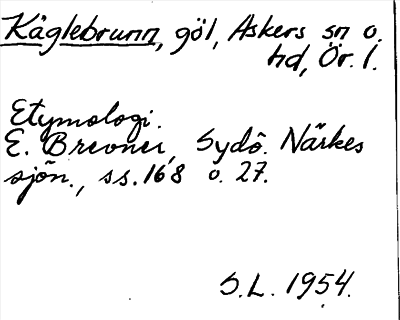 Käglebrunn, göl, Askers sn o.
hd, Ör. l.
Etymologi.
E. Brevner, Sydö. Närkes
sjön., ss. 168 o. 27.
S.L. 1954.